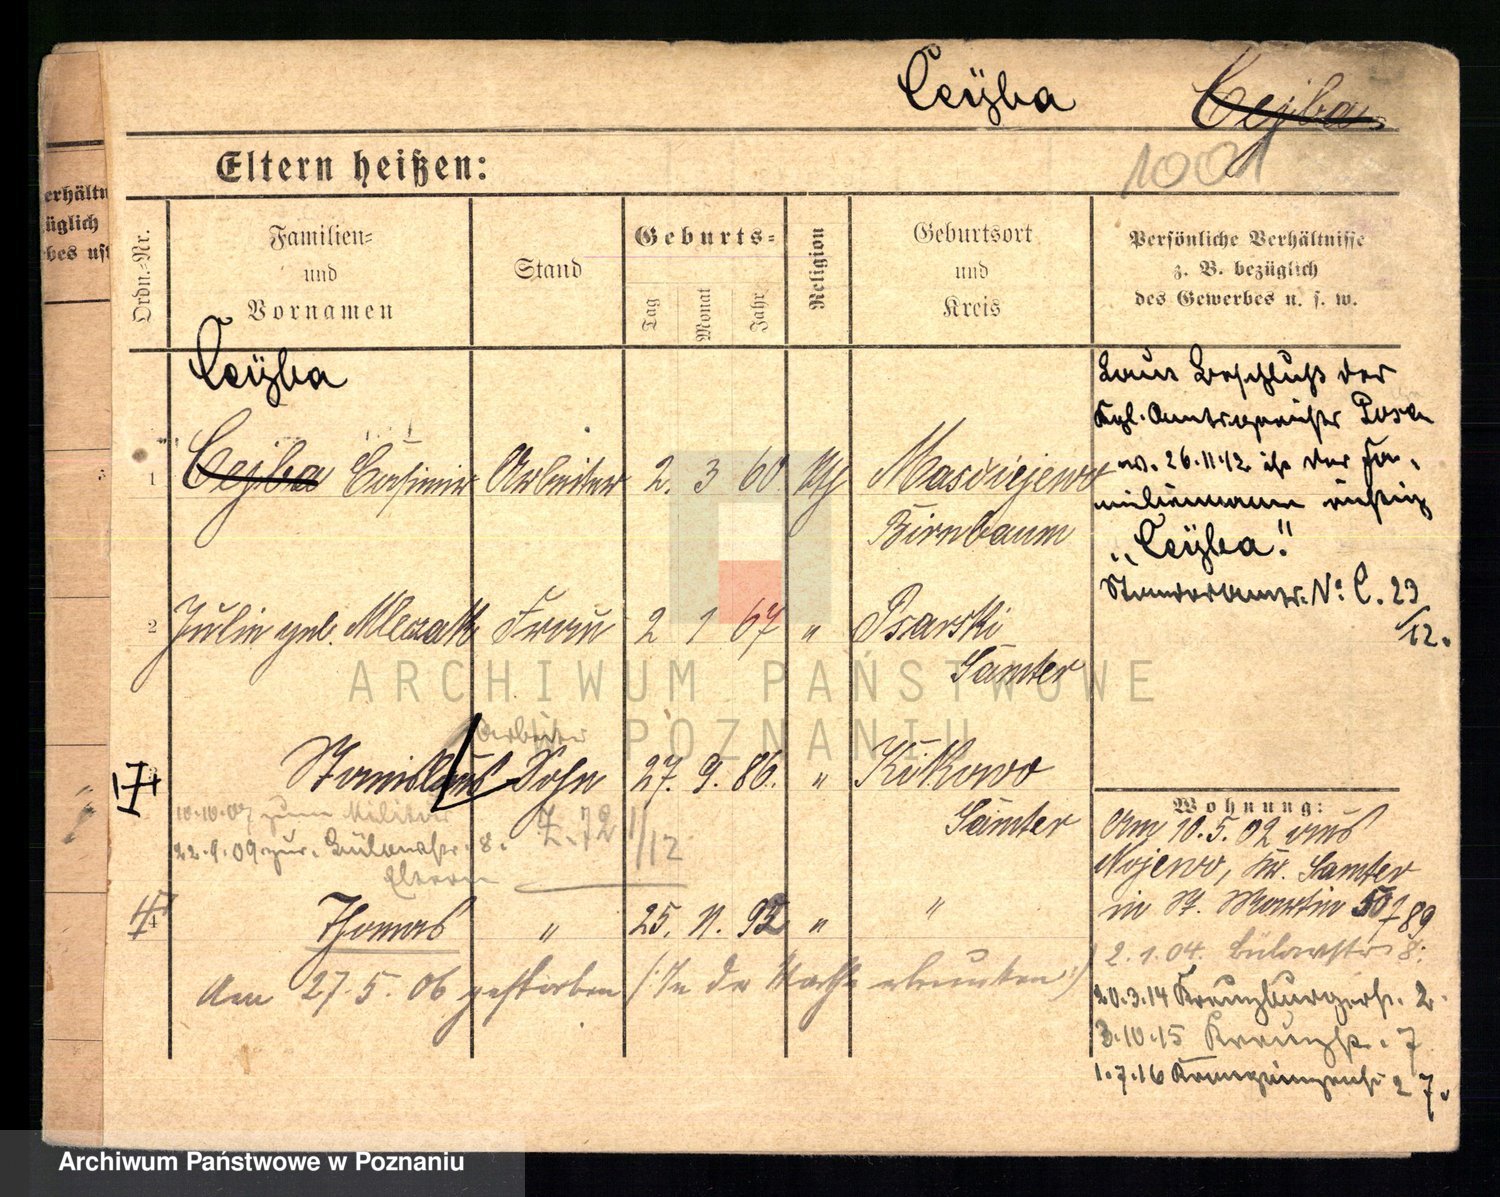 Ceÿba Cejba
1001
Eltern heißen:
erhältn
üglich
bes usf
Ordn.-Nr.
Familien-
und
Vornamen
Stand
Geburts-
Tag Monat Jahr
Religion
Geburtsort
und
Kreis
Persönliche Verhältnisse
z. B. bezüglich
des Gewerbes u. s. w.
Ceÿba
1 Cejba Casimir Arbeiter 2. 3 60. Birnbaum
2 Julia geb. Mleczak Frau 2 1 67 " Psarski
Samter
Arbeiter
Stanislaus Sohn 27. 9. 86. " Kikowo
Samter
10.10.07 zum Militär
22.9.09 zur. Bülowstr. 8.
Eltern
Z. 72 1/12
4 Thomas " 25. 11. 92 " "
Am 27.5.06 gestorben (: In der Warthe ertrunken :)
Laut Beschluß des
Kgl. Amtsgerichts Posen
v. 26.11.12 ist der Fa-
milienname richtig
"Ceÿba."
Standesamts. No C. 23
/12.
Wohnung:
Am 10.5.02 aus
Nojewo, Kr. Samter
in St. Martin 50 789
2.1.04. Bülowstr 8.
20.3.14 Kreuzburgerstr. 2.
3.10.15 7
1.7.16 27.
ARCHIWUM PAŃSTWOWE
POZNANIU
Archiwum Państwowe w Poznaniu